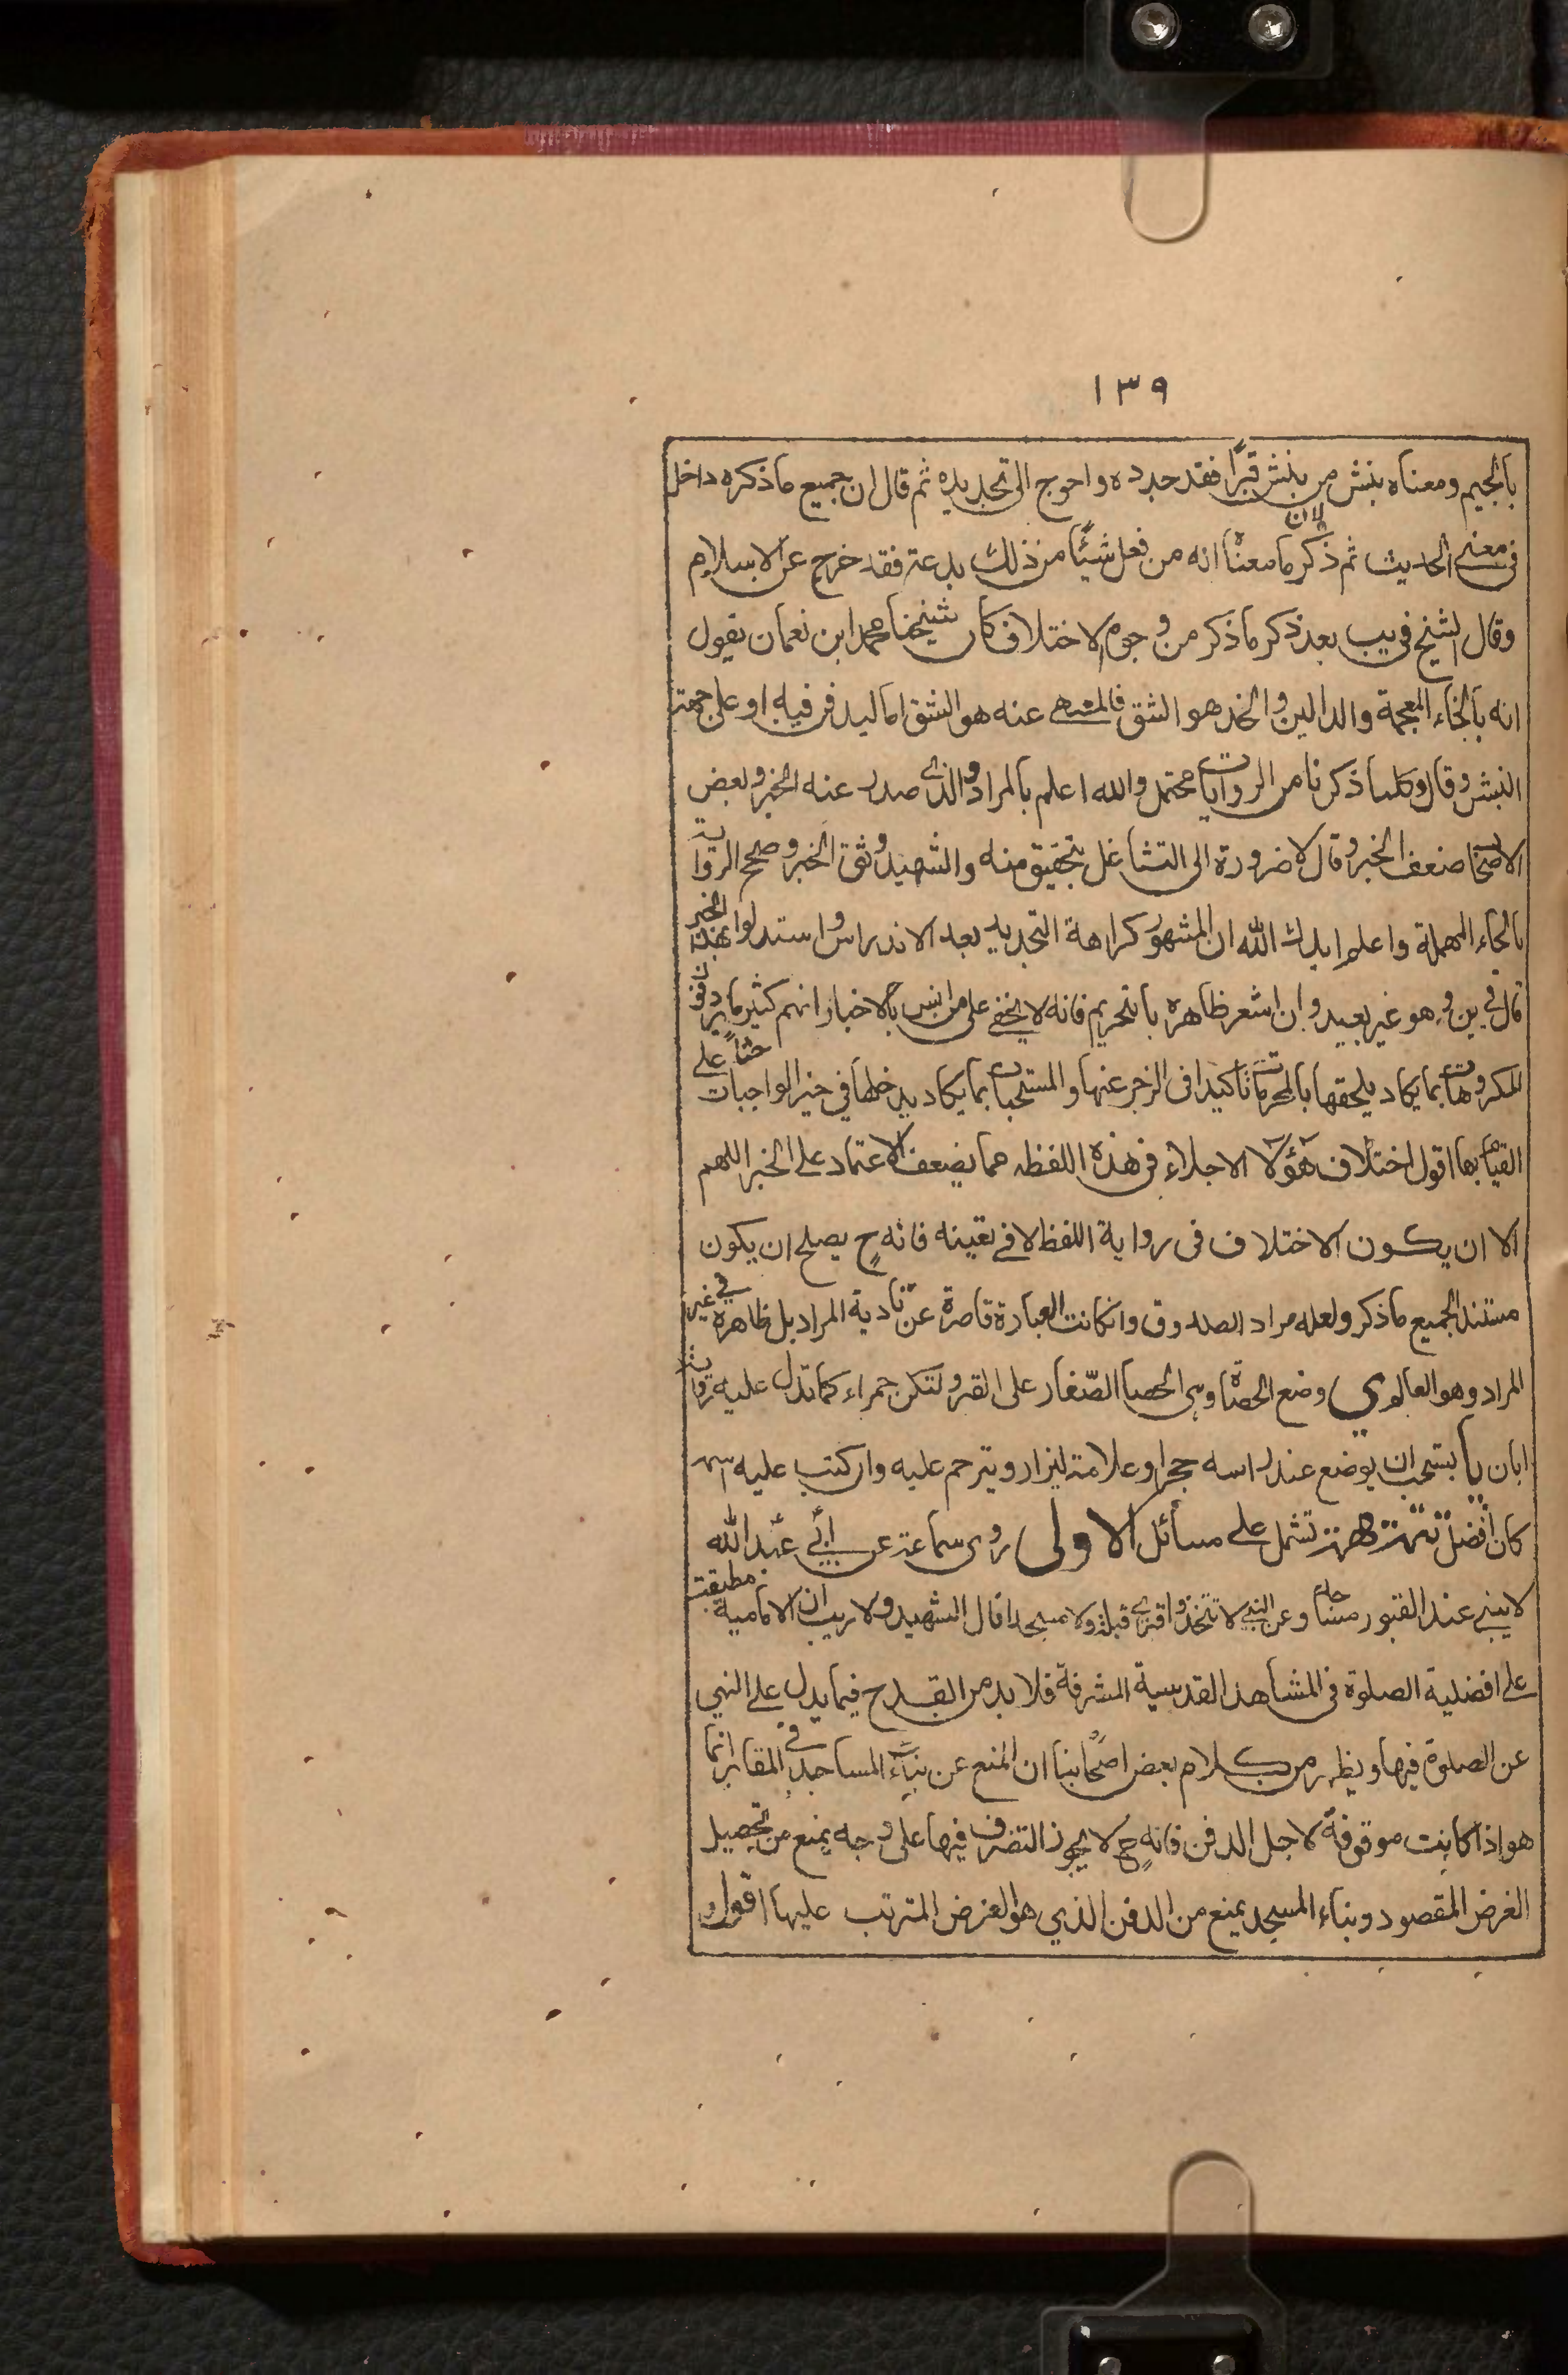 ١٣٩
بالجيم ومعناه ينبش من ينبش قبرًا فقد جدده واحوج الى تجديده ثم قال ان جميع ما ذكره داخل
فى معنى الحديث ثم ذكر ما معناه لان انه من فعل شيئًا من ذلك بدعة فقد خرج عن الاسلام
وقال الشيخ في يب بعد ذكر ما ذكر من وجوه الاختلاف كان شيخنا محمد ابن نعمان يقول
انه بالخاء المعجمة والدالين والخد هو الشق فالمنهى عنه هو الشق اما ليدفن فيه او على جهة
النبش وقال وكلما ذكرنا من الروايات محتمل والله اعلم بالمراد والذى صدر عنه الخبر وبعض
الاصحاب ضعف الخبر وقال لا ضرورة الى التشاغل بتحقيق متنه والشهيد وثق الخبر وصحح الرواية
بالحاء المهملة واعلم ايدك الله ان المشهور كراهة التجديد بعد الاندراس واستدلوا بهذا الخبر
قال في ين وهو غير بعيد وان اشعر ظاهره بالتحريم فانه لا يخفى على من انس بالاخبار انهم كثيرما يردفون
المكروهات بما يكاد يلحقها بالمحرمات تاكيدا فى الزجر عنها والمستحبات بما يكاد يدخلها في حيز الواجبات حثاً على
القيام بها اقول اختلاف هؤلاء الاجلاء فى هذه اللفظه مما يضعف الاعتماد على الخبر اللهم
الا ان يكون الاختلاف فى رواية اللفظ لا فى تعينه فانه ح يصلح ان يكون
مستند الجميع ما ذكر ولعله مراد الصدوق وانكانت العبارة قاصرة عن تادية المراد بل ظاهره في غير
المراد وهو العالم ى وضع الحصاة وهى الحصا الصّغار على القبر ولتكن حمراء كما تدل عليه رواية
ابان يا يستحب ان يوضع عند راسه حجرا وعلامة ليزار ويترحم عليه وان كتب عليه اسمه
كان افضل تتمة مهمة تشمل على مسائل الاولى روى سماعة عن ابي عبد الله
لا يبنى عند القبور مساجد وعن النبي لا تتخذوا قبرى قبلة ولا مسجدا قال الشهيد ولا ريب ان الامامية مطبقة
على افضلية الصلوة فى المشاهد القدسية المشرفة فلا بد من القدح فيما يدل على النهي
عن الصلوة فيها ويظهر من كلام بعض اصحابنا ان المنع عن بناء المساجد في المقابر انما
هو اذا كانت موقوفة لاجل الدفن فانه ح لا يجوز التصرف فيها على وجه يمنع من تحصيل
الغرض المقصود وبناء المسجد يمنع من الدفن الذي هو الغرض المترتب عليها اقول و